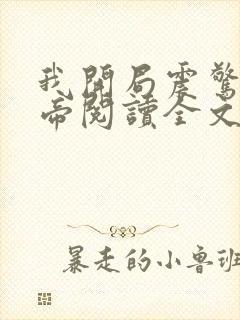 我開局震驚
帝閱讀全文
暴走的小魯班